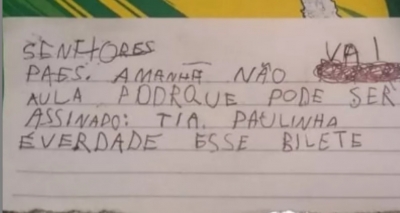 SENHORES VAI
PAES. AMANHÃ NÃO
AULA PODRQUE PODE SER
ASSINADO: TIA. PAULINHA
ÉVERDADE ESSE BILETE